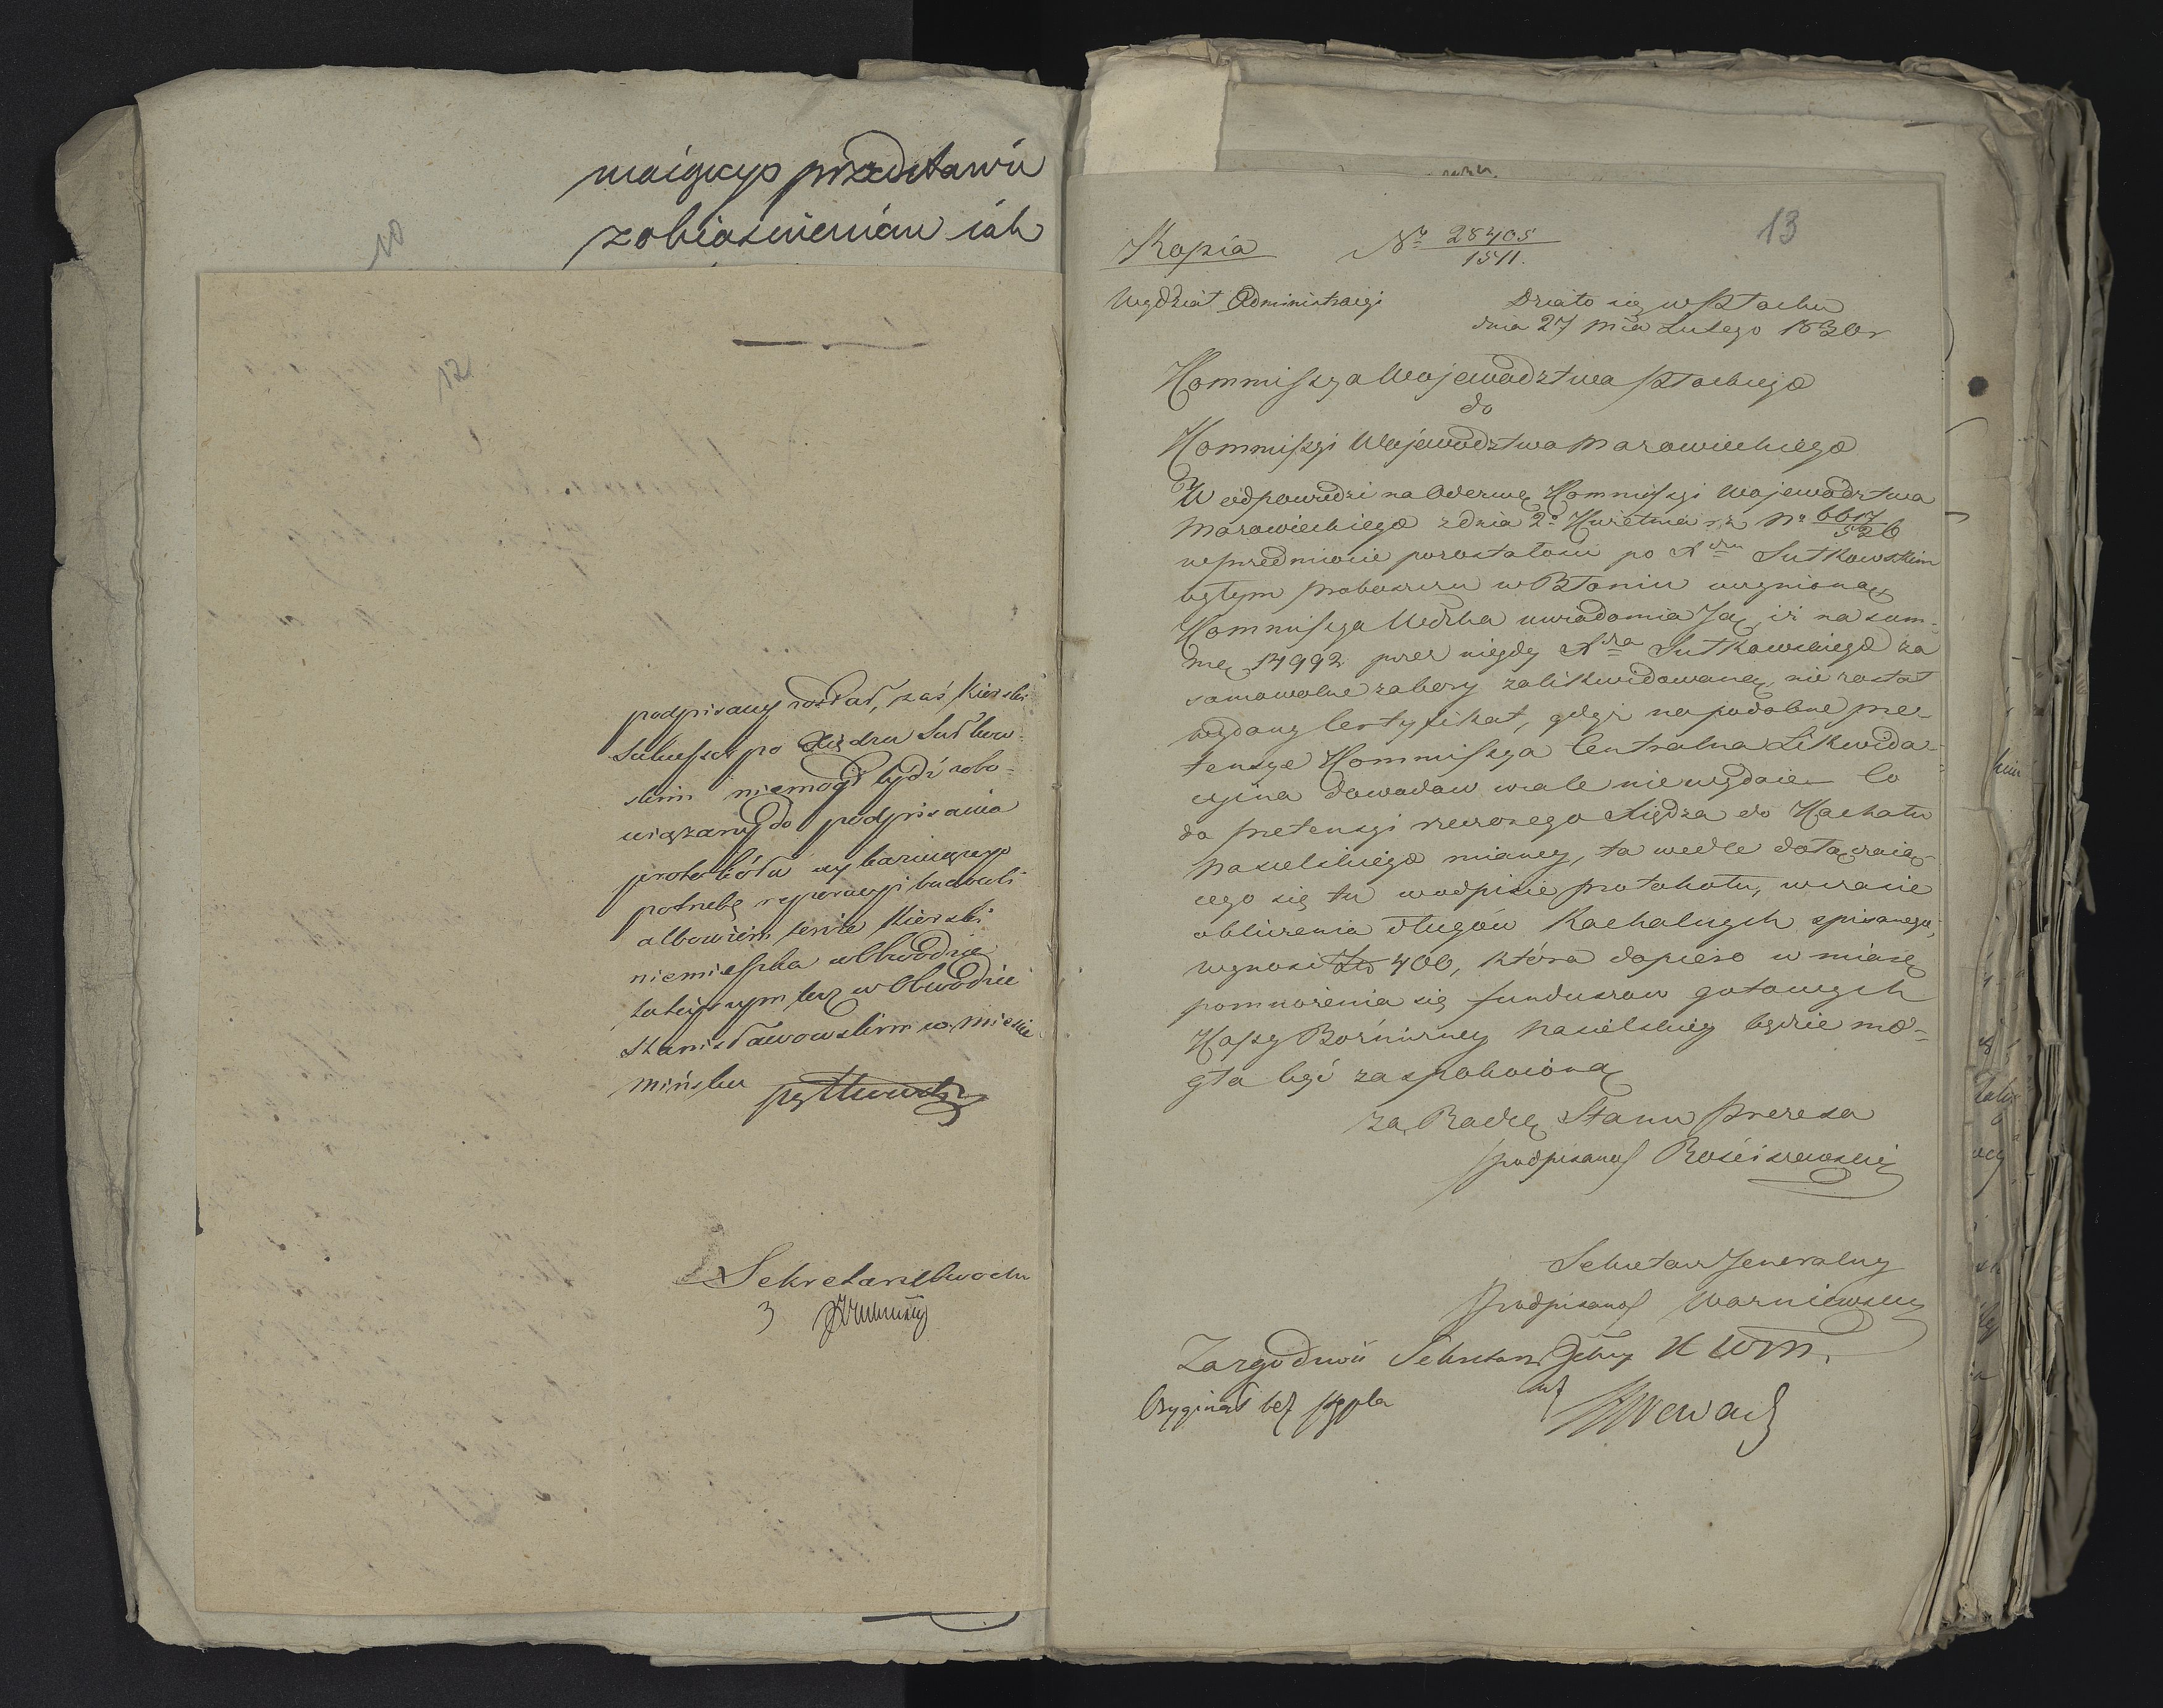 maiącego przedstawiu
zobiasnieniem iak
10
12
podpisany został, zaś Kierski
Sukcessor po Xiędzu Sutkow-
skim niemógł bydź zobo-
wiązany do podpisania
protokółu wykazuiącego
potrzebę reperacyi budowli
albowiem tenże Kierski
niemieszka w Obwodzie
tuteyszym lecz w Obwodzie
Stanisławowskim w Mieście
Mińsku
Sekretarz Obwodu
3
13
Kopia Nr 28405
1511.
Wydział Administracyi Działo się w Płocku
dnia 27 Mca Lutego 1830r
Kommissya Województwa Płockiego
do
Kommissyi Województwa Mazowieckiego
W odpowiedzi na Odezwę Kommissyi Województwa
Mazowieckiego z dnia 2o Kwietnia r. z. No 6617
526
w przedmiocie pozostałości po Xdzu Sutkowskim
byłym proboszczu w Błoniu uczynioną
Kommissya Wdzka uwiadomia Ją, iż na sum-
mę 14992 przez niegdy Xdza Sutkowskiego za
samowolne zabory zalikwidowaną, nie został
wydany Certyfikat, gdyż na podobne pre-
tensye Kommissya Centralna Likwida-
cyina dowodow wcale niewydaie. Co
do pretensyi rzeczonego Xiędza do Kachału
Nasielskiego mianey, ta wedle dołączaią-
cego się tu w odpisie protokołu, w czasie
obliczenia długów Kachalnych spisanego,
wynosi Złp 400, która dopiero w miarę
pomnożenia się funduszow gotowych
Kassy Bożniczney Nasielskiey będzie mo-
gła być zaspokoioną
za Radcę Stanu Prezesa
/podpisano/ Rościszewski
Sekretarz Jeneralny
/podpisano/ Warniewski
Za zgodność Sekretarz Jlny K W M.
Oryginał bez stępla